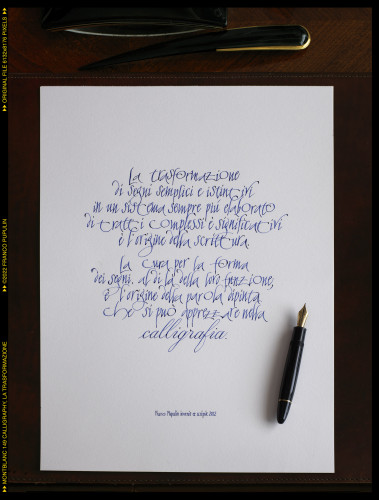 La trasformazione
di segni semplici e istintivi
in un sistema sempre più elaborato
di tratti complessi e significativi
è l'origine della scrittura.
La cura per la forma
dei segni, al di là della loro funzione,
è l'origine della parola dipinta
che si può apprezzare nella
calligrafia.
Franco Pupulin invenit et scripsit 2022
MONTBLANC 149 CALLIGRAPHY, LA TRASFORMAZIONE
©2022 FRANCO PUPULIN
ORIGINAL FILE 6132x8176 PIXELS